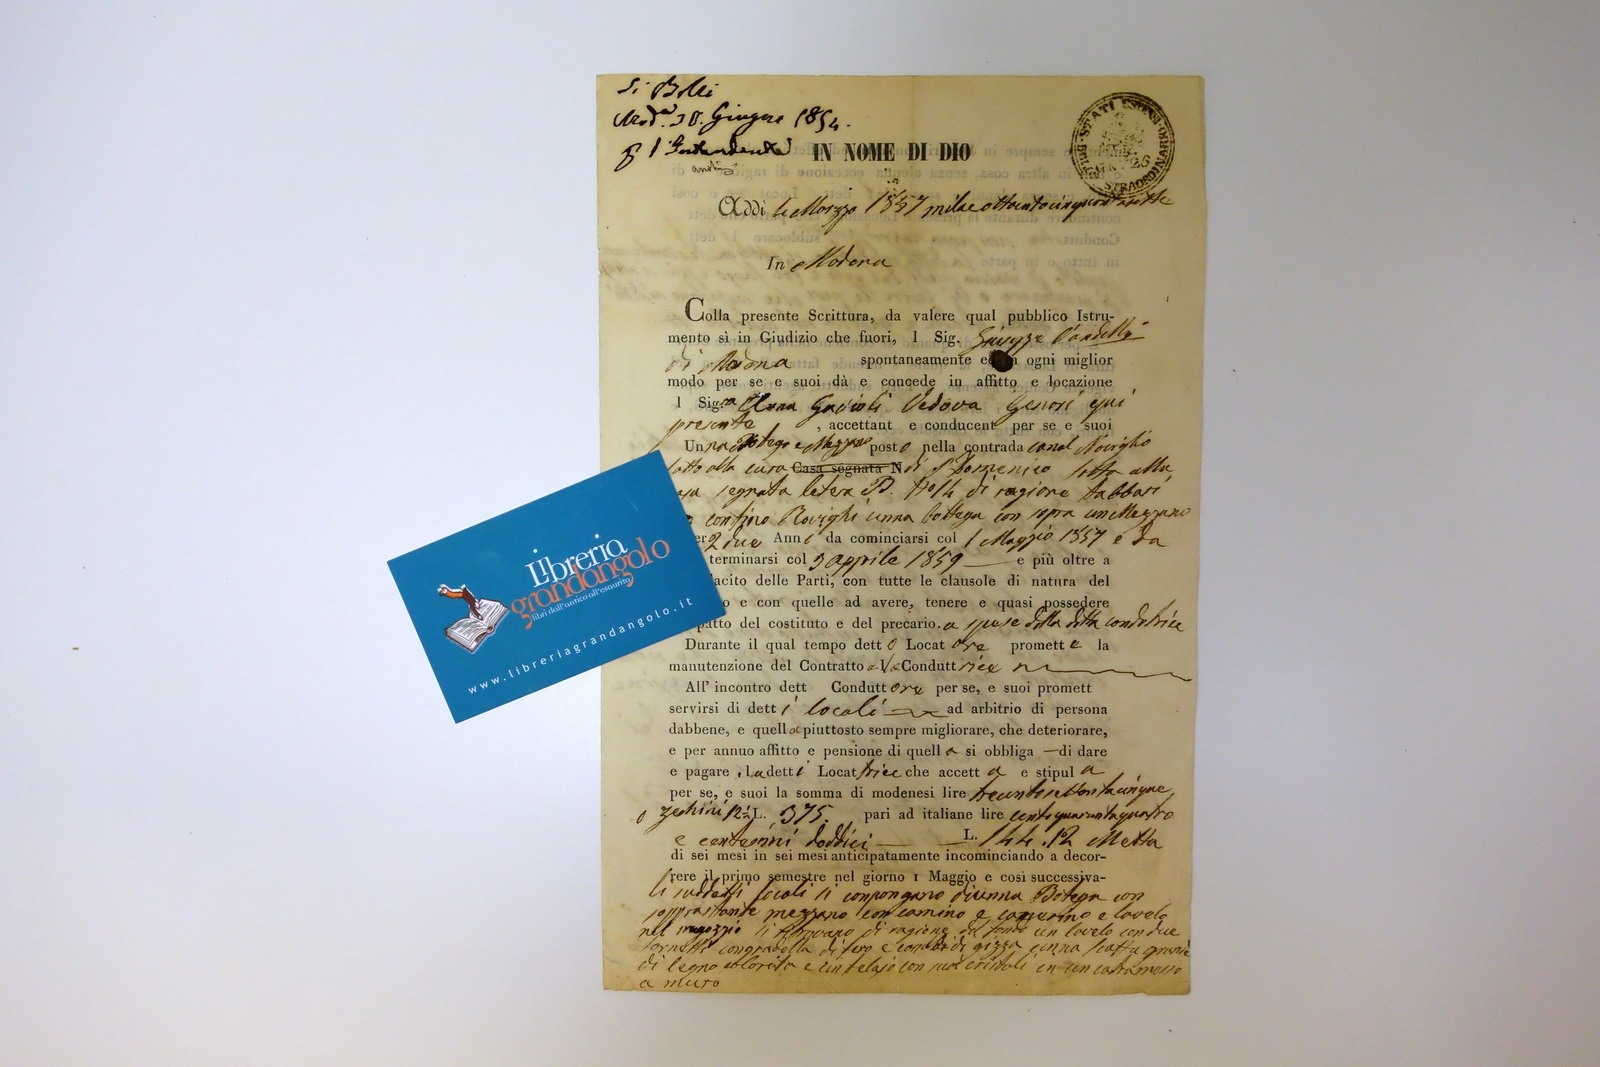 Si Bolli
Mod.ª 30. Giugno 1854.
p l'Intendente
IN NOME DI DIO
BOLLO STRAORDINARIO STATI ESTENSI
Addì Marzzo 1857 milae ottocentocinquantasette
In Modena
Colla presente Scrittura, da valere qual pubblico Istru-
mento sì in Giudizio che fuori, l Sig. Giuseppe Vandelli
di Modena spontaneamente ed ogni miglior
modo per se e suoi dà e concede in affitto e locazione
l Sig.ra Anna Gavioli Vedova qui
presente , accettant e conducent per se e suoi
Unna Botega e Mezzano posto nella contrada canal Naviglio
sotto alla cura Casa segnata N di S. Domenico sotto alla
segnata letera D. No 14 di ragione
confino Rovighi unna bottega con sopra un Mezzano
er 2 due Anni da cominciarsi col 1 Maggio 1857 e da
terminarsi col 3 aprile 1859 e più oltre a
lacito delle Parti, con tutte le clausole di natura del
o e con quelle ad avere, tenere e quasi possedere
patto del costituto e del precario. a spese della detta condutrice
Durante il qual tempo dett o Locat ore promett e la
manutenzione del Contratto a la Condutt rice
All' incontro dett Condutt ore per se, e suoi promett
servirsi di dett i locali ad arbitrio di persona
dabbene, e quell a piuttosto sempre migliorare, che deteriorare,
e per annuo affitto e pensione di quell a si obbliga di dare
e pagare la dett i Locat trice che accett a e stipul a
per se, e suoi la somma di modenesi lire trecentosettantacinque
o zechini 12½ L. 375. pari ad italiane lire centoquarantaquatro
e centesimi doddici L. 144.12 Metta
di sei mesi in sei mesi anticipatamente incominciando a decor-
rere il primo semestre nel giorno 1 Maggio e così successiva-
li suddetti locali si conpongano di unna Botega con
soprastante mezzano con camino e camerino e lavelo
nel negozzio si trovano di ragione del fondo un lavelo con due
fornelli con gradella di fero e
di legno colorita e un telajo con
a muro
Libreria
grandangolo
libri dall'antico all'esaurito
www.libreriagrandangolo.it